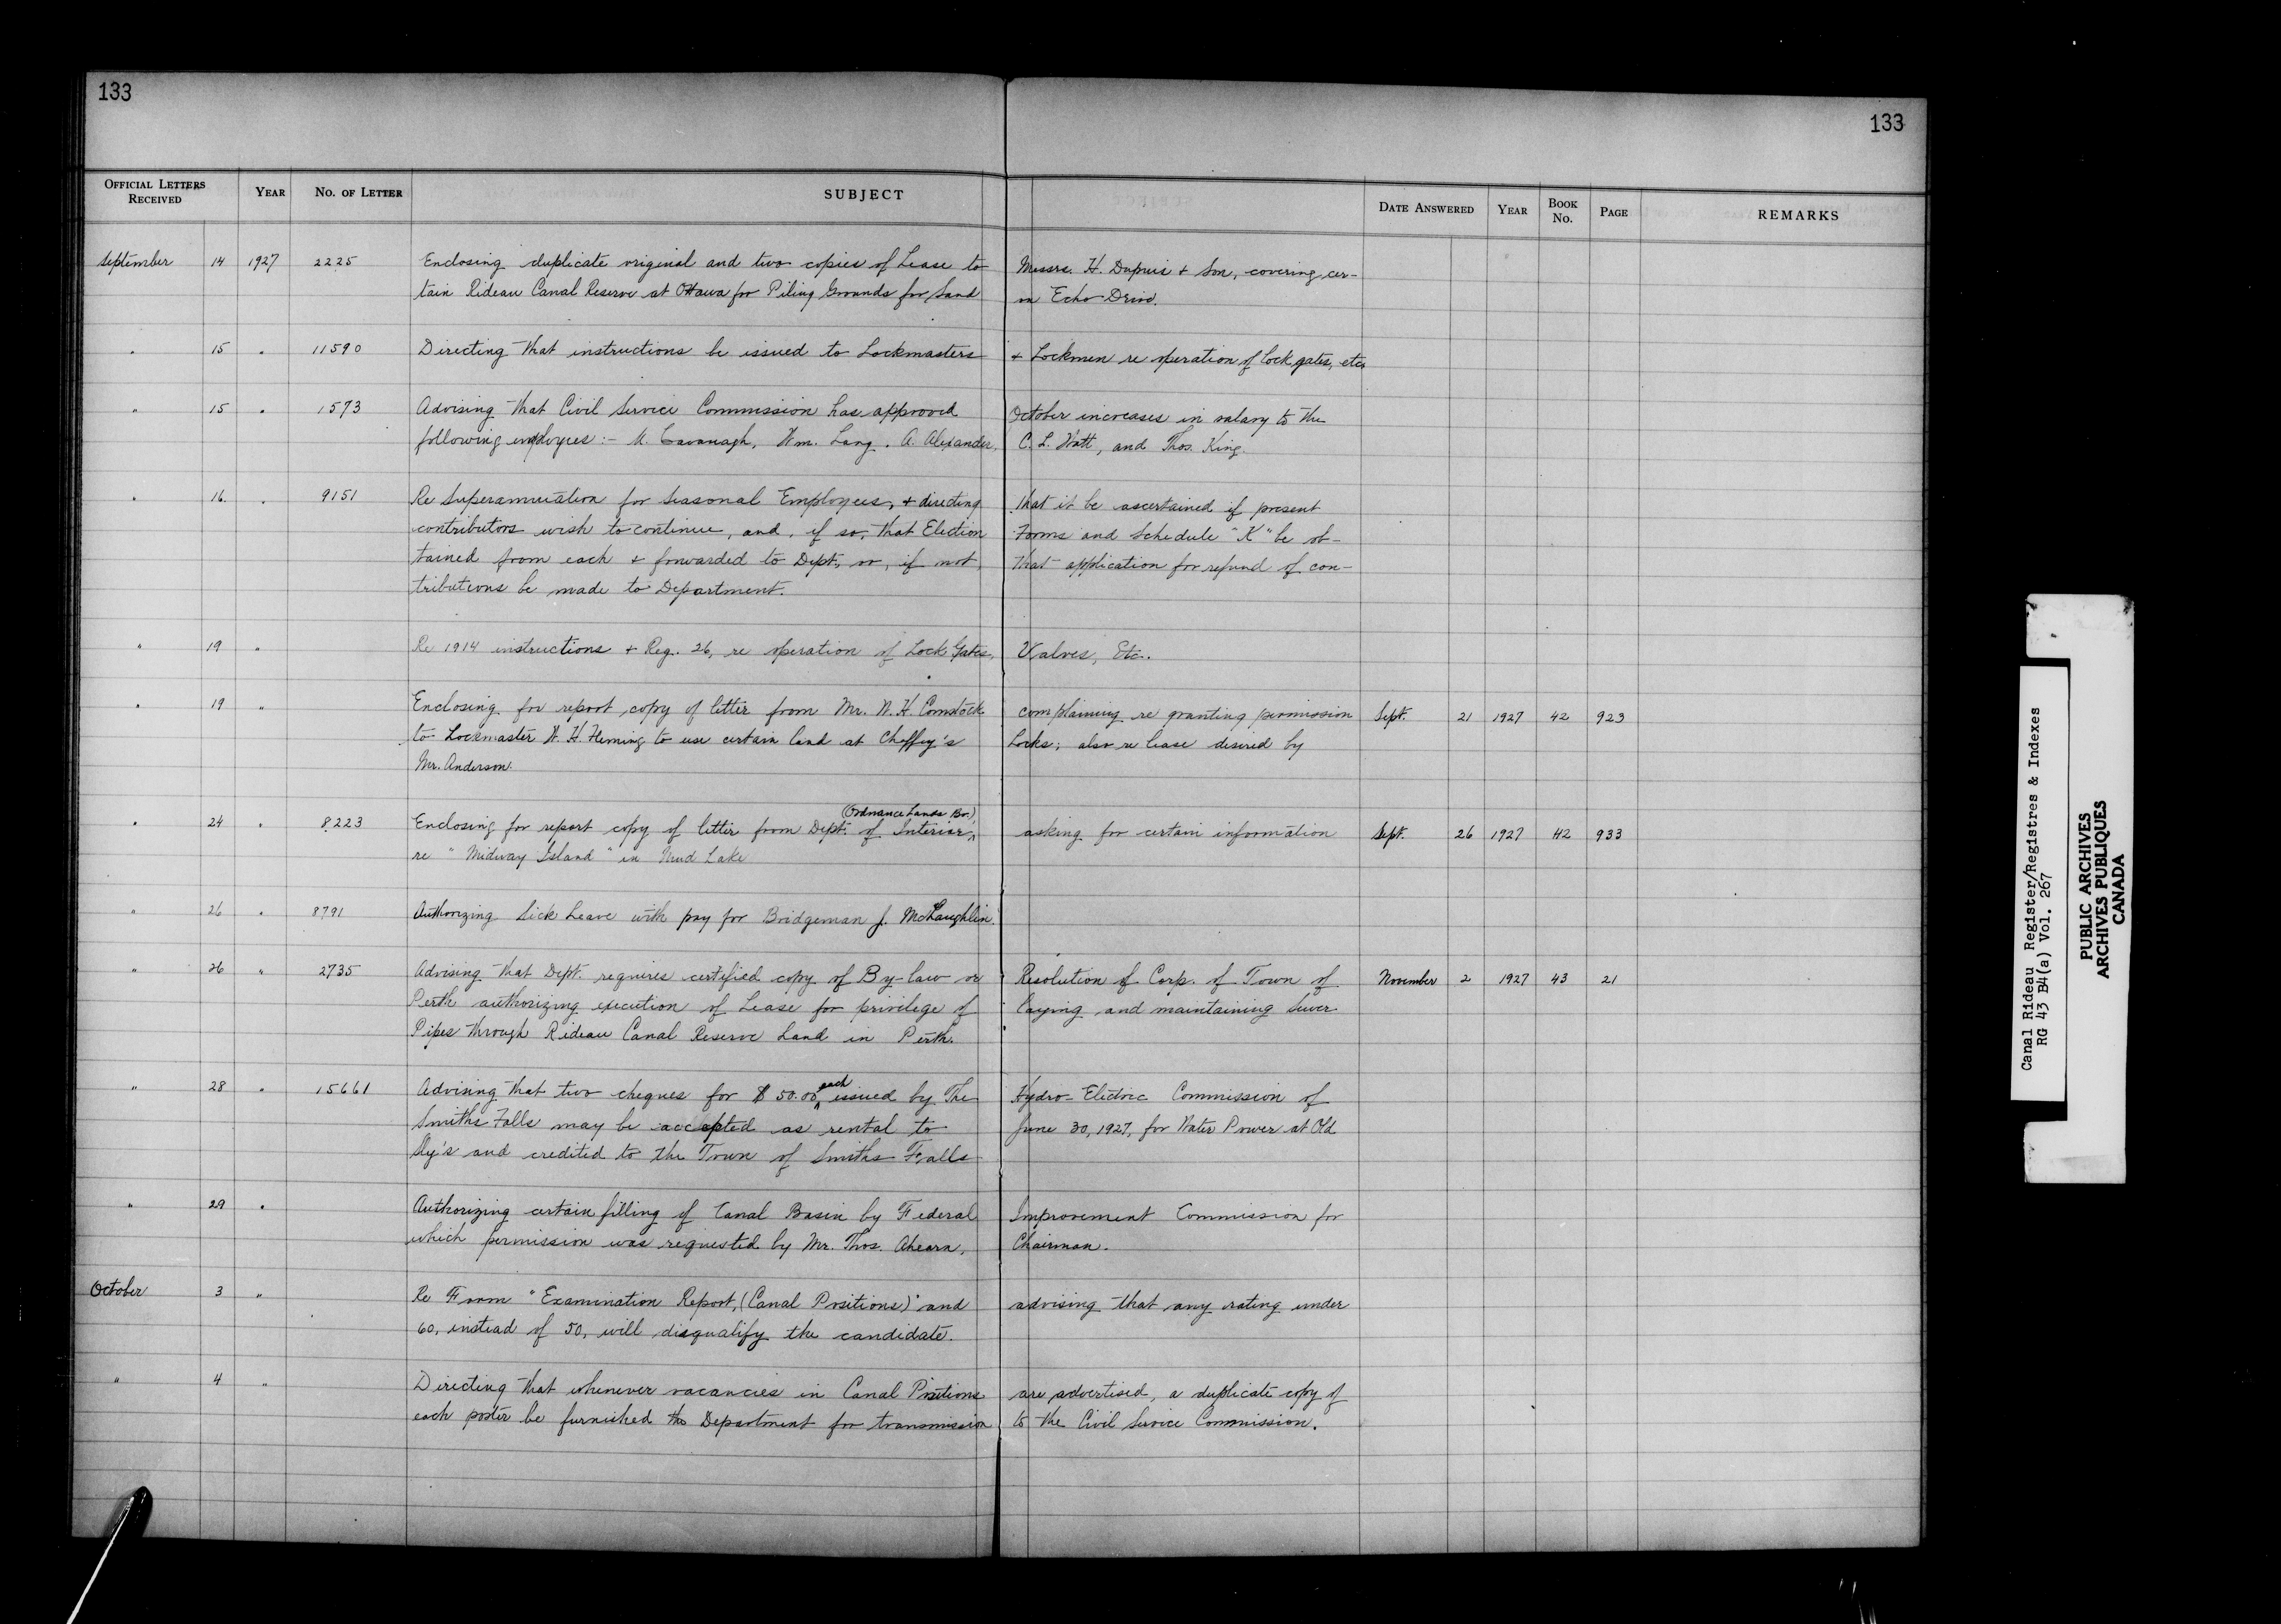 133
133
OFFICIAL LETTERS RECEIVED YEAR NO. OF LETTER SUBJECT DATE ANSWERED YEAR BOOK NO. PAGE REMARKS
September 14 1927 2225 Enclosing duplicate original and two copies of Lease to Messrs. H. Dupuis & Son, covering cer-
tain Rideau Canal Reserve at Ottawa for Piling Grounds for Sand on Echo Drive.
" 15 " 11590 Directing that instructions be issued to Lockmasters & Lockmen re operation of lock gates, etc.
" 15 " 1573 Advising that Civil Service Commission has approved October increases in salary to the
following employees:- M. Cavanagh, Wm. Lang, A. Alexander, C. L. Watt, and Thos. King.
" 16 " 9151 Re Superannuation for Seasonal Employees, & directing that it be ascertained if present
contributors wish to continue, and, if so, that Election Forms and Schedule "K" be ob-
tained from each & forwarded to Dept., or, if not, that application for refund of con-
tributions be made to Department.
" 19 " Re 1914 instructions & Reg. 26, re operation of Lock Gates, Valves, Etc.
" 19 " Enclosing for report copy of letter from Mr. W. H. Comstock complaining re granting permission Sept. 21 1927 42 923
to Lockmaster W. H. Fleming to use certain land at Chaffey's Locks; also re lease desired by
Mr. Anderson.
(Ordnance Lands Br.)
" 24 " 8223 Enclosing for report copy of letter from Dept. of Interior, asking for certain information Sept. 26 1927 42 933
re "Midway Island" in Mud Lake
" 26 " 8791 Authorizing Sick Leave with pay for Bridgeman J. McLaughlin.
" 26 " 2735 Advising that Dept. requires certified copy of By-law or Resolution of Corp. of Town of November 2 1927 43 21
Perth authorizing execution of Lease for privilege of laying and maintaining Sewer
Pipes through Rideau Canal Reserve Land in Perth.
" 28 " 15661 Advising that two cheques for $50.00 each issued by The Hydro-Electric Commission of
Smiths Falls may be accepted as rental to June 30, 1927, for Water Power at Old
Sly's and credited to the Town of Smiths Falls
" 29 " Authorizing certain filling of Canal Basin by Federal Improvement Commission for
which permission was requested by Mr. Thos. Ahearn, Chairman.
October 3 " Re Form "Examination Report, (Canal Positions)" and advising that any rating under
60, instead of 50, will disqualify the candidate.
" 4 " Directing that whenever vacancies in Canal Positions are advertised, a duplicate copy of
each poster be furnished the Department for transmission to the Civil Service Commission.
Canal Rideau Register/Registres & Indexes
RG 43 B4(a) Vol. 267
PUBLIC ARCHIVES
ARCHIVES PUBLIQUES
CANADA